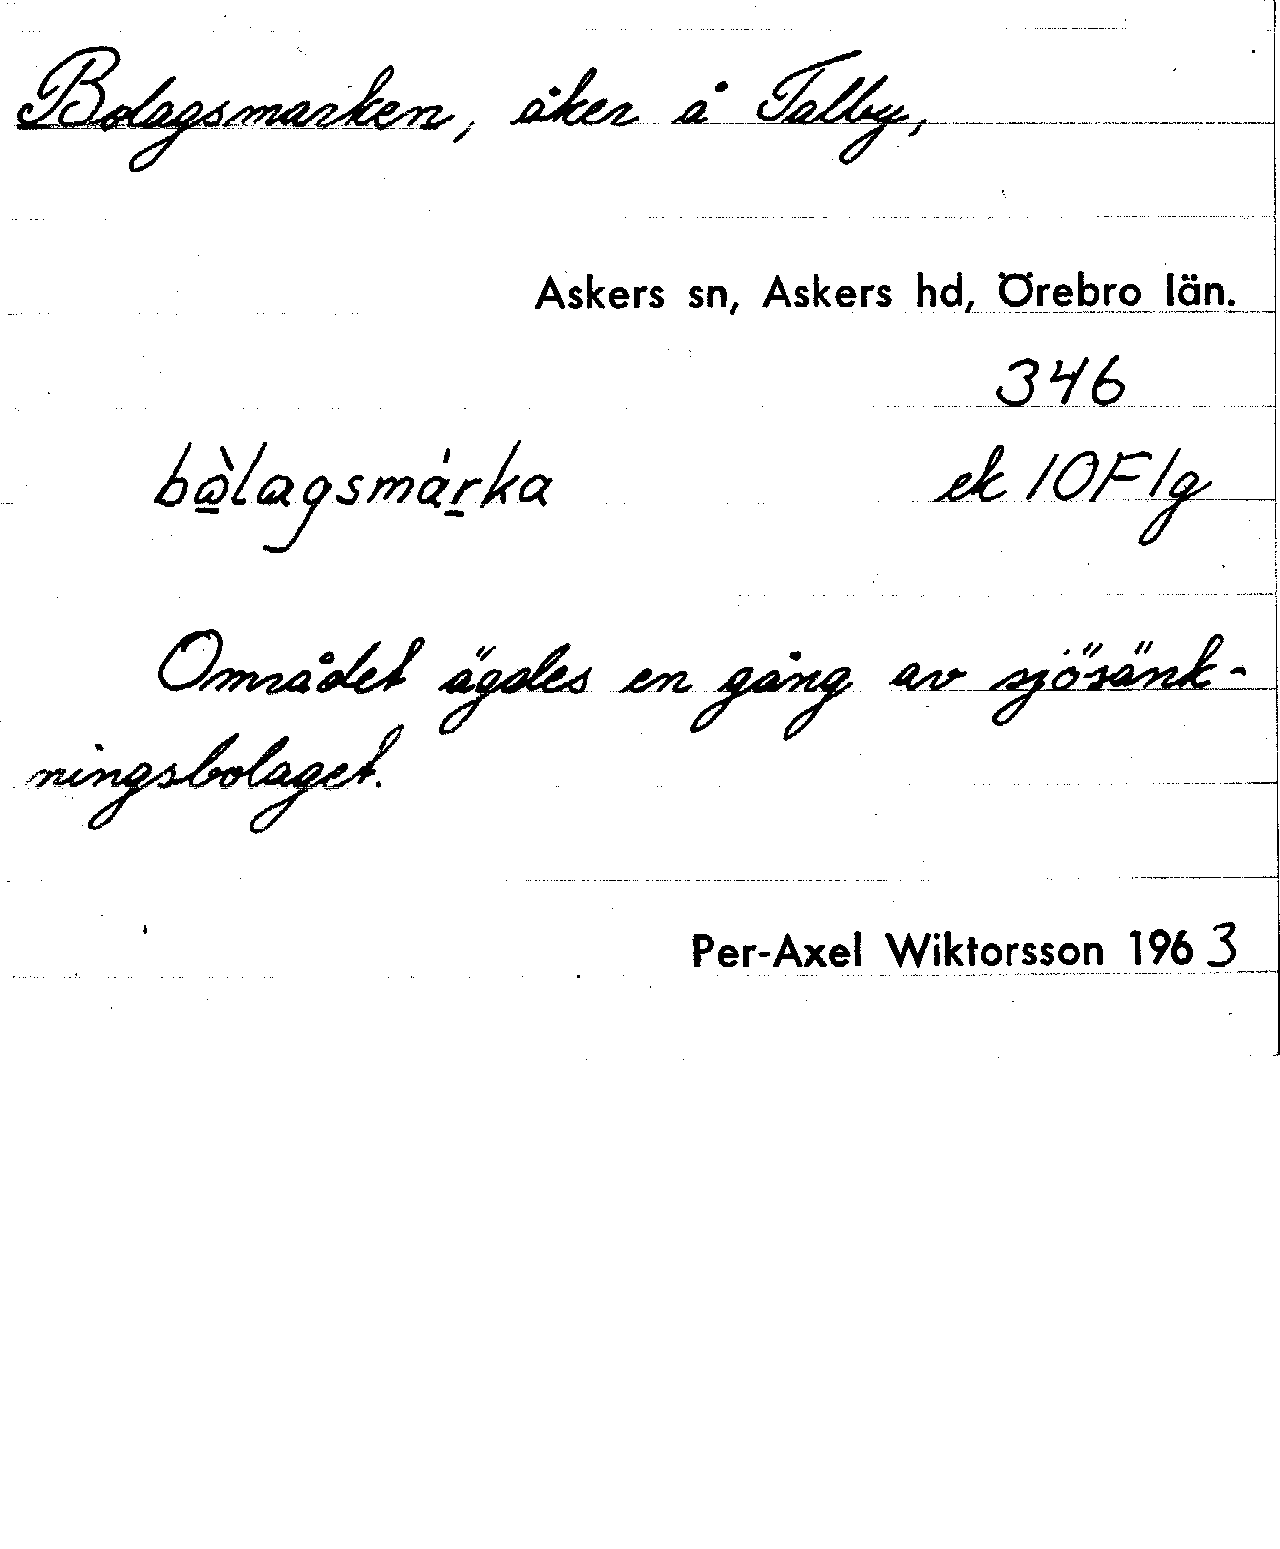 Bolagsmarken, åker å Talby,
Askers sn, Askers hd, Örebro län.
346
bòlagsmárka ek 10F1g
Området ägdes en gång av sjösänk-
ningsbolaget.
Per-Axel Wiktorsson 1963